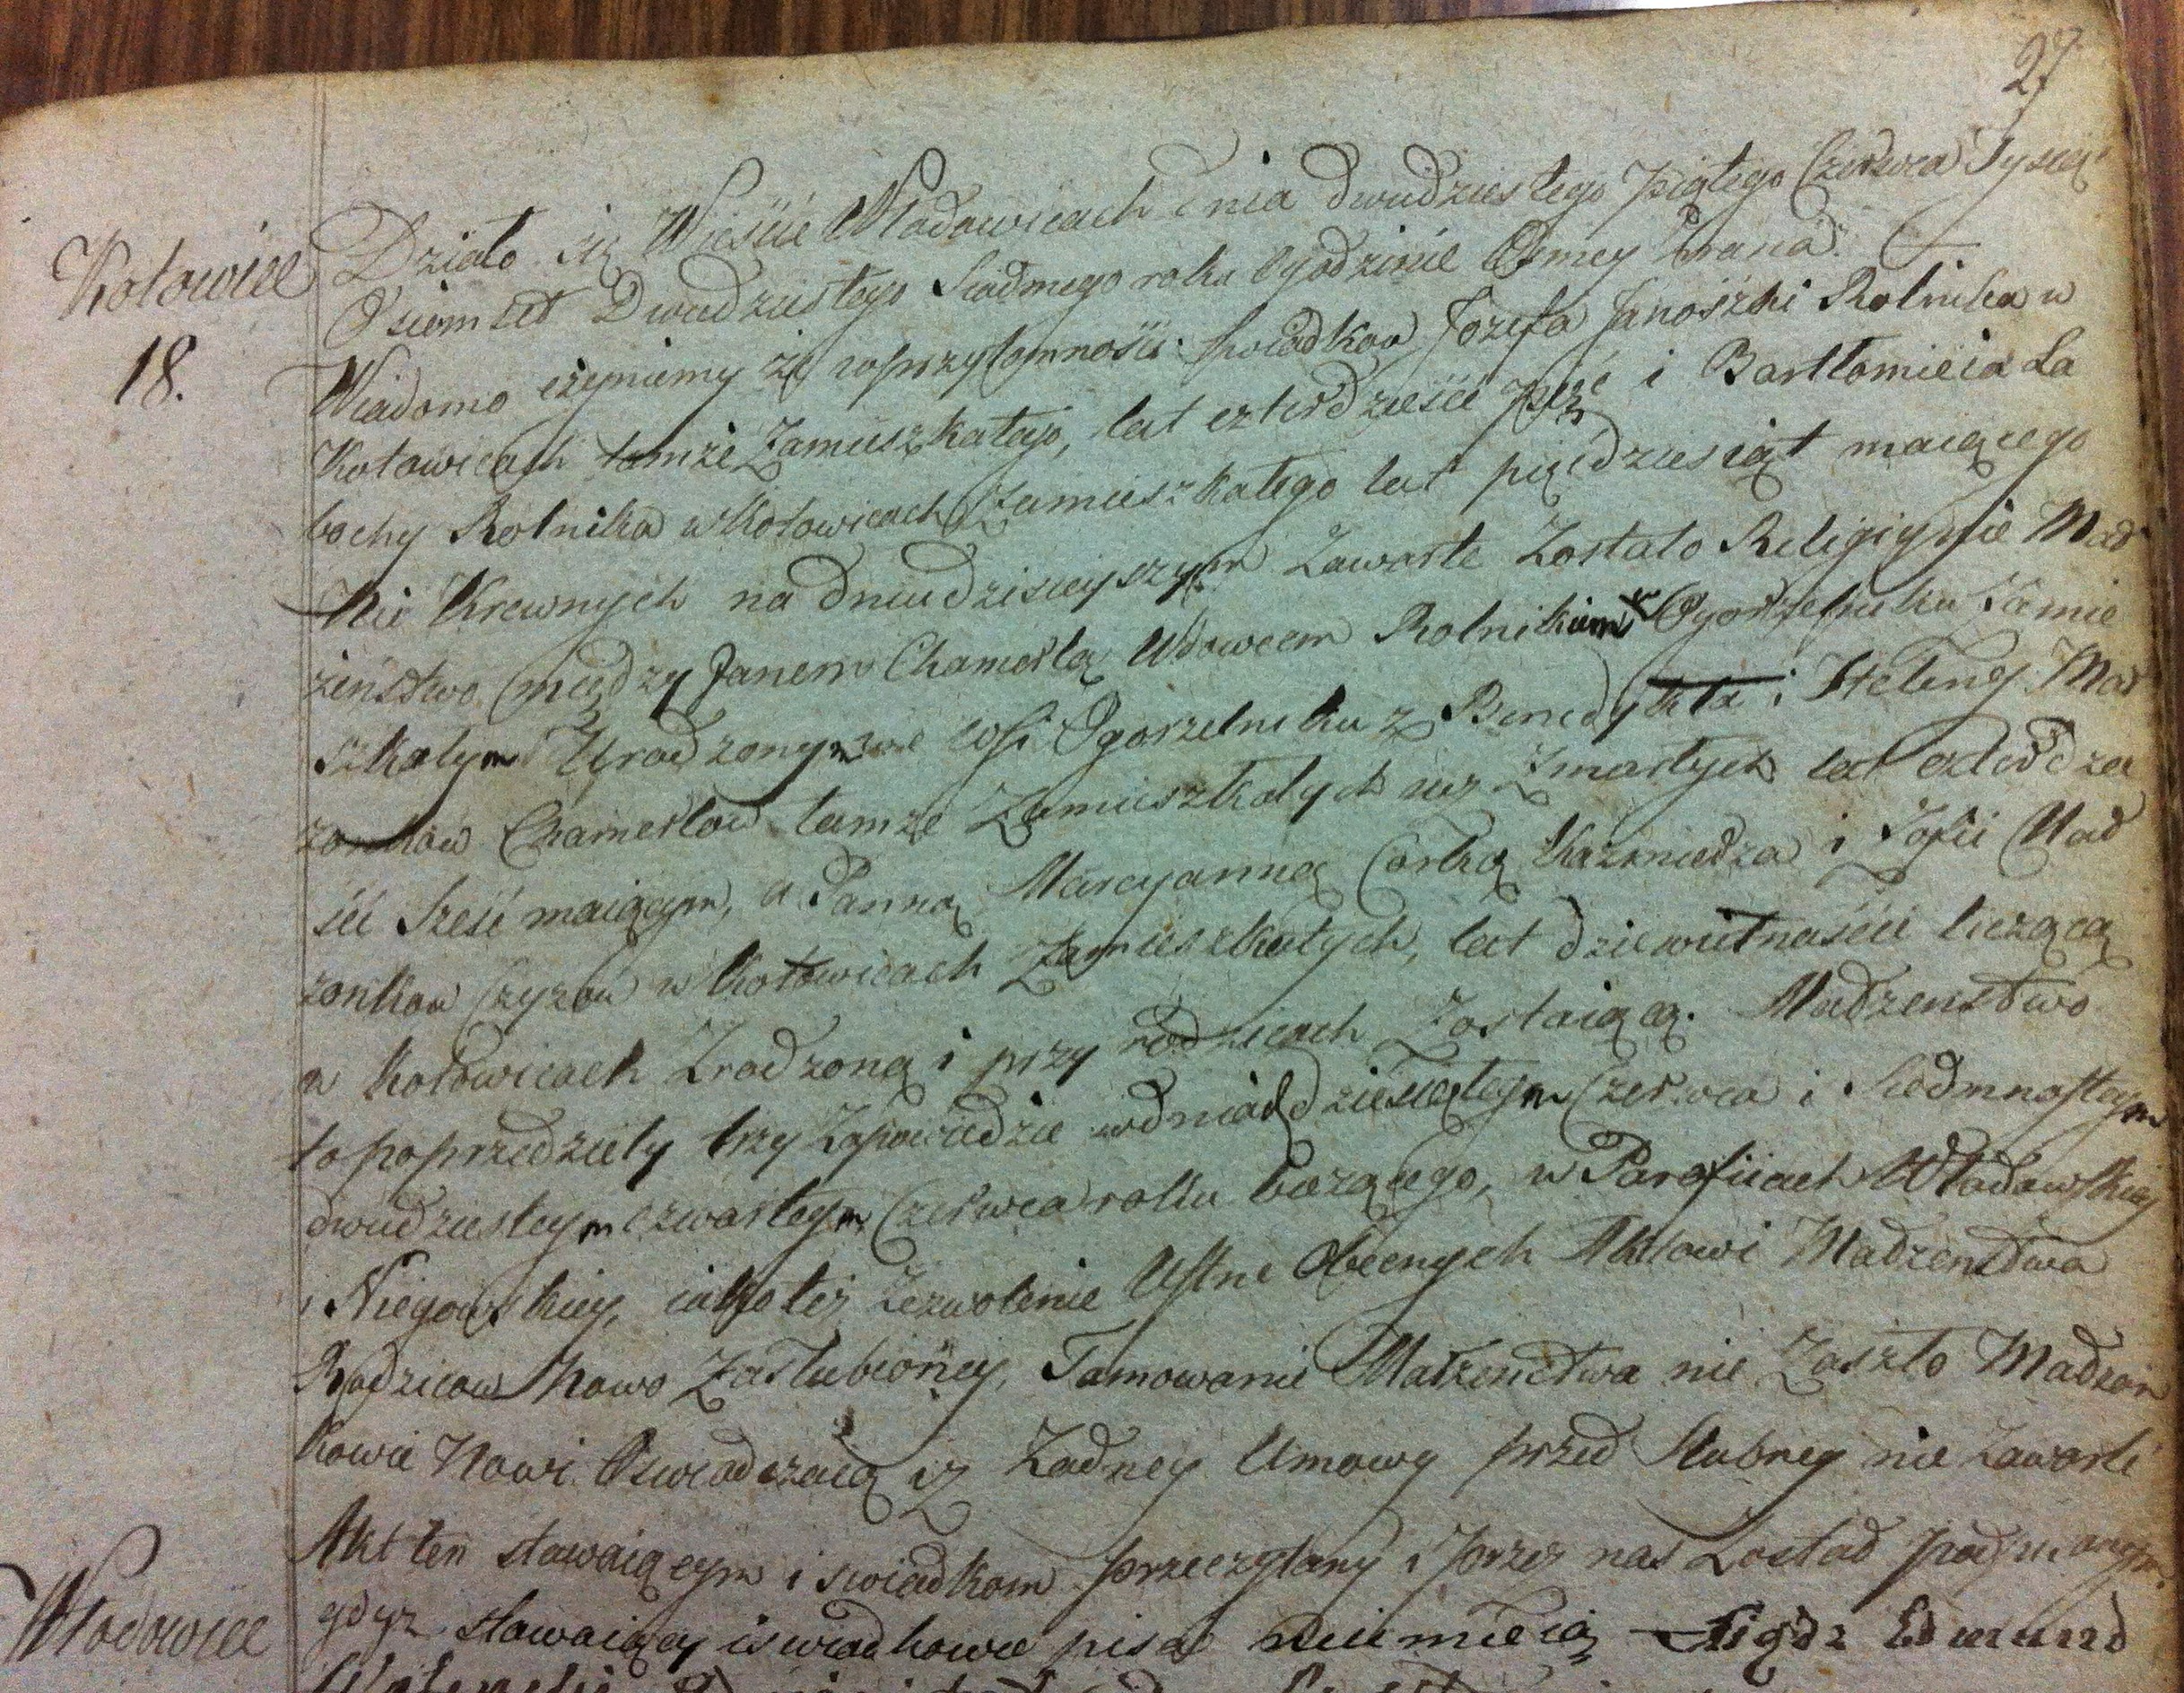 27
Kotowice
18.
Działo się w Mieście Włodowicach dnia dwudziestego piątego Czerwca Tysiąc
Osiemset Dwudziestego Siodmego roku o godzinie Osmey zrana.
Wiadomo czyniemy że w przytomności świadkow Jozefa Janoszki Rolnika w
Kotowicach tamże Zamieszkałego, lat czterdzieści pięć i Bartłomieia La
bochy Rolnika w Kotowicach Zamieszkałego lat pięcdziesiąt maiącego
Nie Krewnych na dniu dzisieyszym Zawarte Zostało Religiynie Mał
żeństwo między Janem Chamerlą Wdowcem Rolnikiem w Ogorzelniku Zamie
szkałym Urodzonym we wsi Ogorzelniku z Benedykta i Heleny Mał
żonkow Chamerlow tamże Zamieszkałych iuż Zmarłych lat czterdzie
ści sześć maiącym, a Panną Maryanną Corką Kaźmierza i Zofii Mał
żonkow Czyżow w Kotowicach Zamieszkałych, lat dziewietnaście liczącą
w Kotowicach Zrodzoną i przy rodzicach Zostaiącą. Małżenstwo
to poprzedziely trzy Zapowiedzie w dniach dziesiątym Czerwca i Siedmnastym
dwudziestym czwartym Czerwca roku bieżącego, w Parafiiach Włodowskiey
i Niegowskiey, iako też Zezwolenie Ustne Obecnych Aktowi Małżenstwa
Rodzicow Nowo Zaślubioney, Tamowanie Małżenstwa nie Zaszło Małżon
kowie Nowi Oswiadczaią iż Żadney Umowy przed Slubney nie zawarli
Akt ten stawaiącym i swiadkom przeczytany i Przez nas Został podpisanym,
gdyz stawaiący i swiadkowie pisać nieumieią Xiądz Edmund
Włodowice